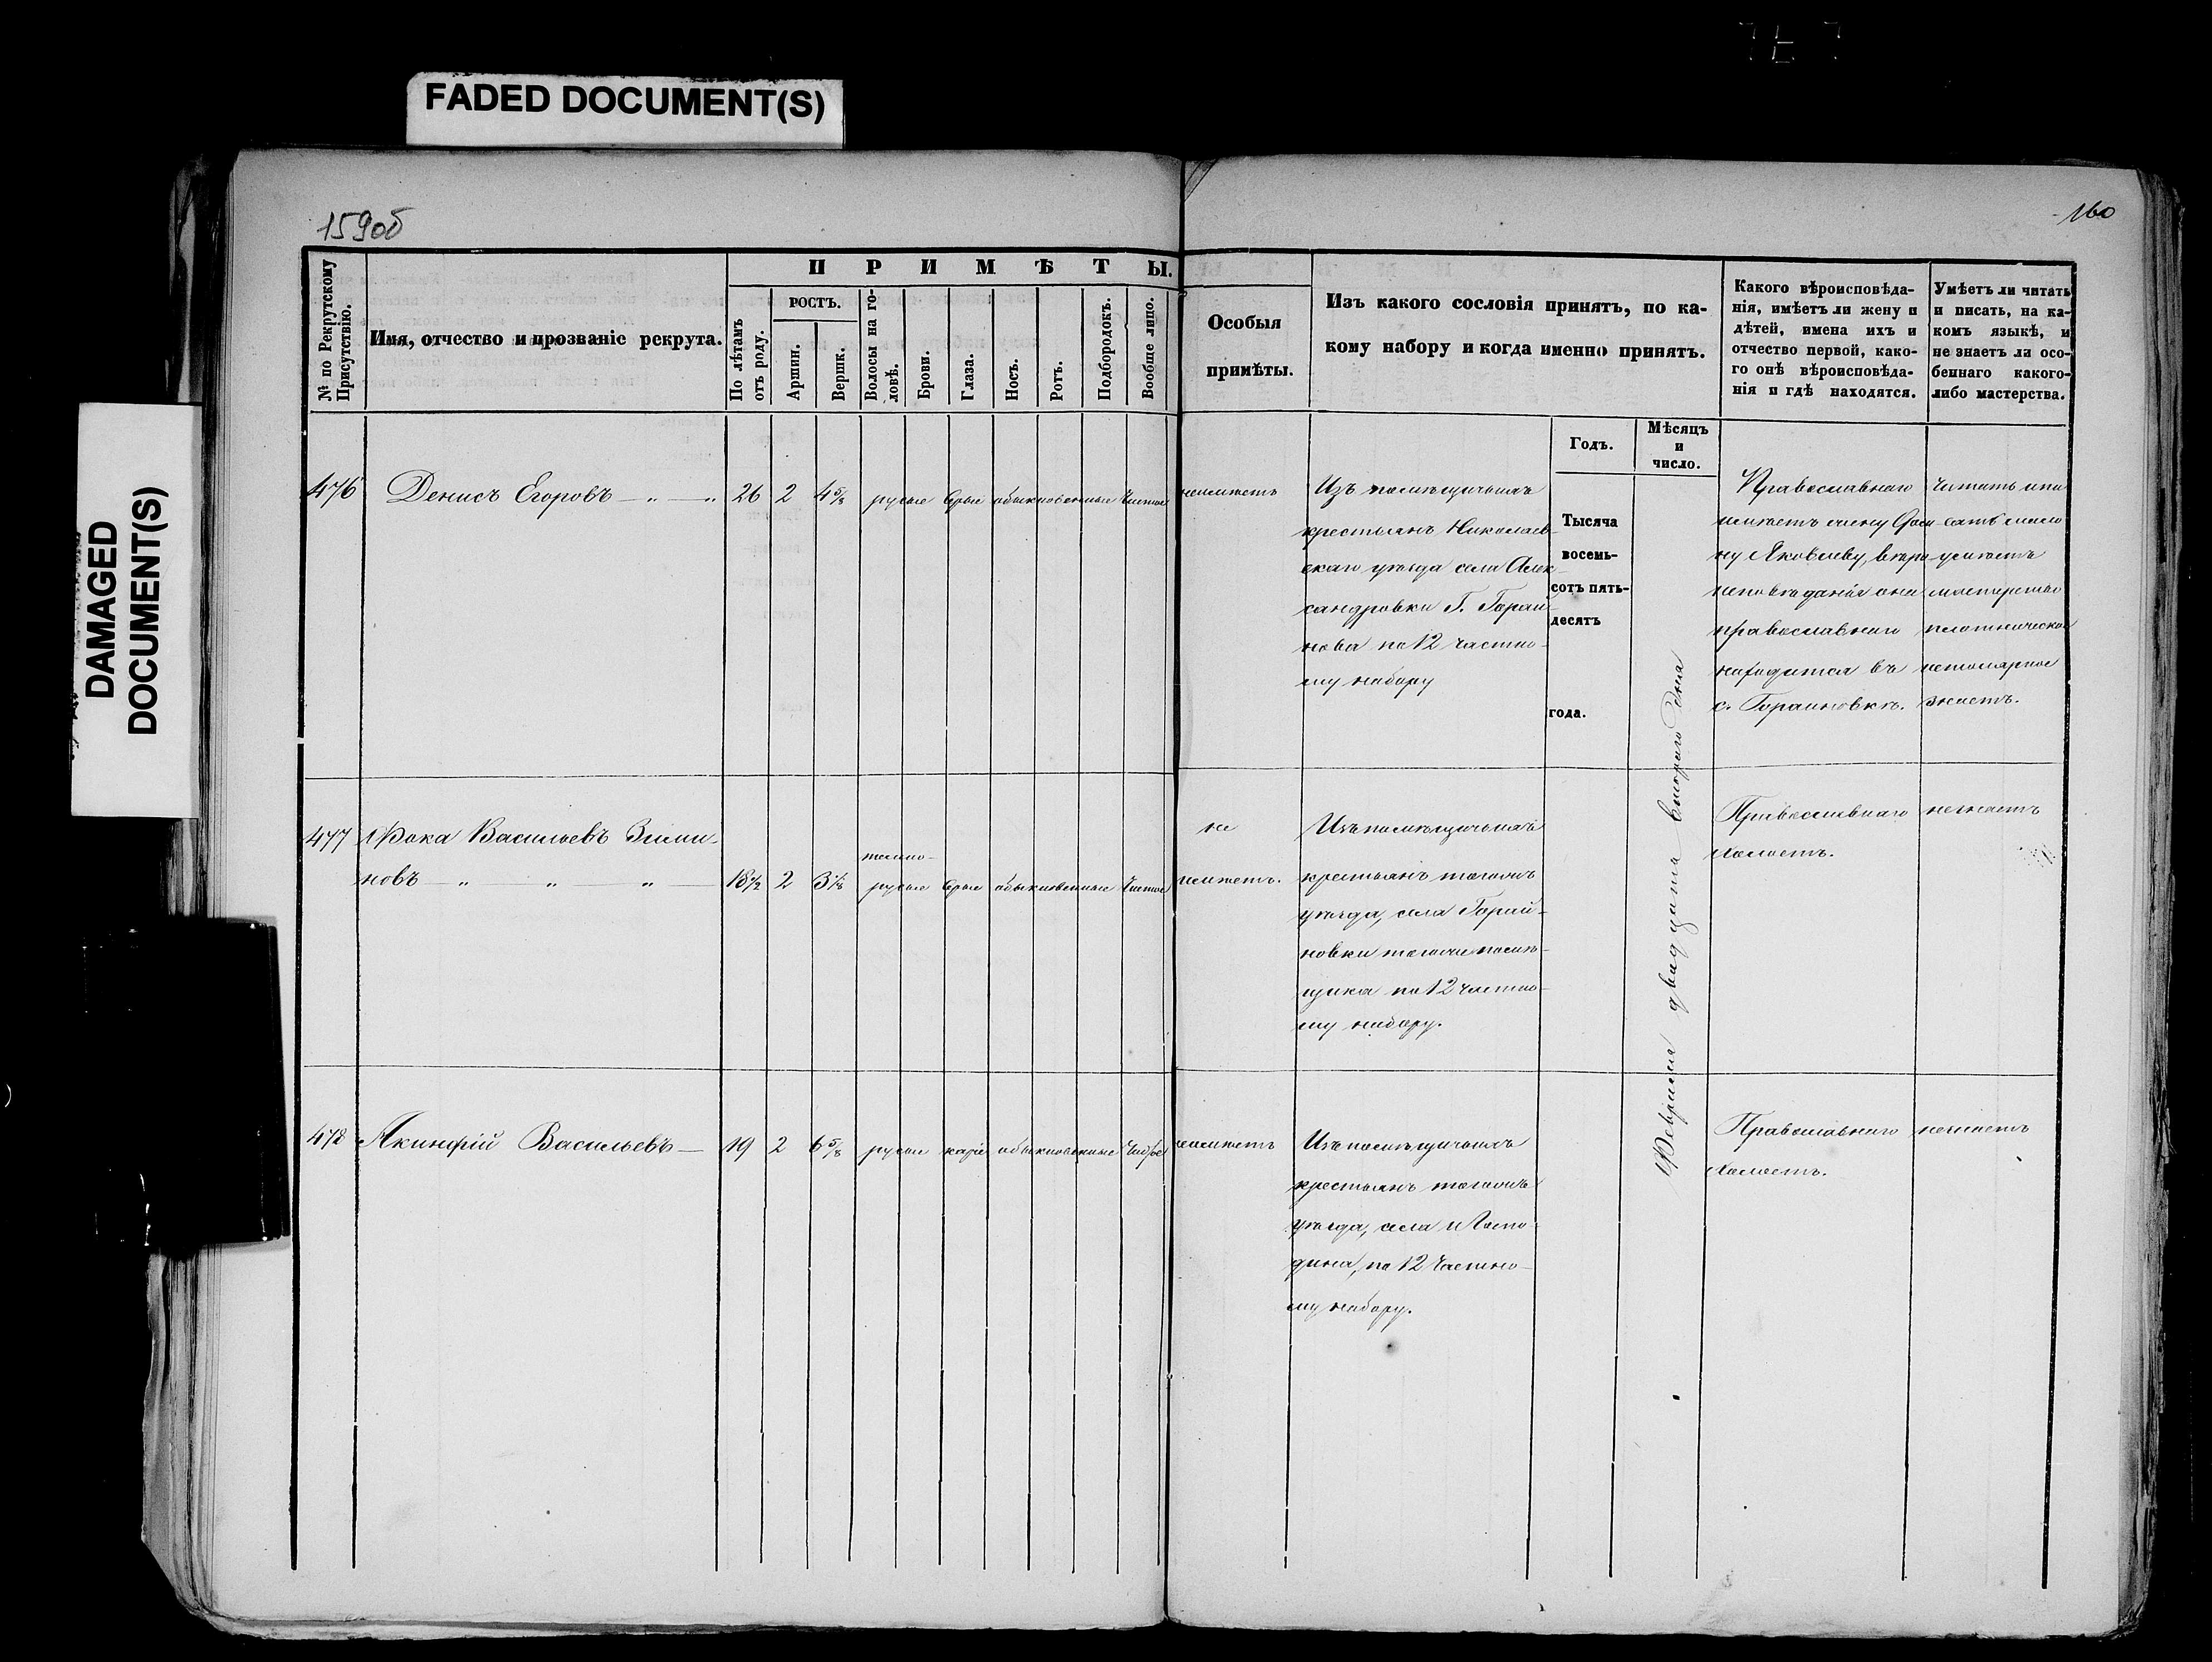 FADED DOCUMENT(S)
DAMAGED
DOCUMENT(S)
159об
160
№ по Рекрутскому
Присутствію.
Имя, отчество и прозваніе рекрута.
ПРИМѢТЫ.
По лѣтамъ
отъ роду.
РОСТЪ.
Аршин.
Вершк.
Волосы на го-
ловѣ.
Брови.
Глаза.
Носъ.
Ротъ.
Подбородокъ.
Вообще лицо.
Особыя
примѣты.
Изъ какого сословія принятъ, по ка-
кому набору и когда именно принятъ.
Годъ.
Мѣсяцъ
и
число.
Какого вѣроисповѣда-
нія, имѣетъ ли жену и
дѣтей, имена ихъ и
отчество первой, како-
го онѣ вѣроисповѣда-
нія и гдѣ находятся.
Умѣетъ ли читать
и писать, на ка-
комъ языкѣ, и
не знаетъ ли осо-
беннаго какого-
либо мастерства.
476 Денисъ Егоровъ 26 2 4 5/8 русые сѣрые обыкновенные чистое неимѣетъ
Изъ помѣщичьихъ
крестьянъ Николаев-
скаго уѣзда села Алек-
сандровки Г. Гораи-
нова по 12 частно-
му набору
Тысяча
восемь-
сотъ пять-
десятъ
года.
Февраля двадцать втораго дня
Православнаго
имѣетъ жену
ну Яковлеву, вѣро
исповѣданія она
православнаго
находится въ
с. Гораиновкѣ.
читать и пи
сать
умѣетъ
мастерство
плотническое
истолярное
знаетъ.
477 Фока Васильевъ Зими-
новъ 18 1/2 2 3 1/8 темно-
русые сѣрые обыкновенные чистое
не
имѣетъ.
Изъ помѣщичьихъ
крестьянъ тогожъ
уѣзда, села Горай-
новки тогоже помѣ-
щика по 12 частно-
му набору.
Православнаго
холостъ.
незнаетъ
478 Акинфій Васильевъ 19 2 6 5/8 русые каріе обыкновенные неимѣетъ
Изъ помѣщичьихъ
крестьянъ тогожъ
уѣзда, села и Госпо-
дина, по 12 частно-
му набору.
Православнаго
холостъ.
незнаетъ